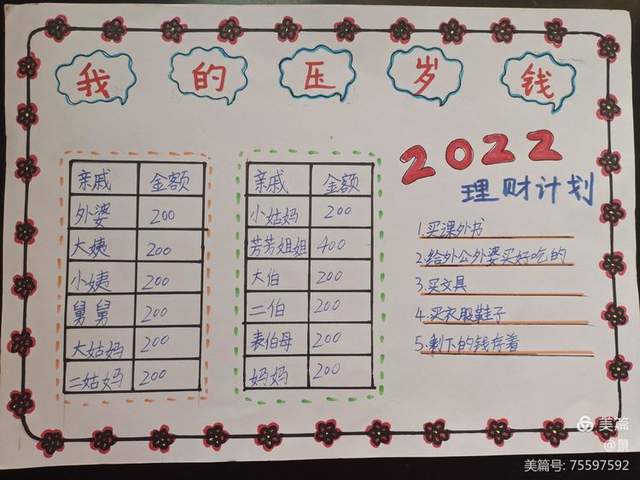 我的压岁钱
亲戚 金额
外婆 200
大姨 200
小姨 200
舅舅 200
大姑妈 200
二姑妈 200
亲戚 金额
小姑妈 200
芳芳姐姐 400
大伯 200
二伯 200
表伯母 200
妈妈 200
2022
理财计划
1.买课外书
2.给外公外婆买好吃的
3.买文具
4.买衣服鞋子
5.剩下的钱存着
美篇
美篇号: 75597592